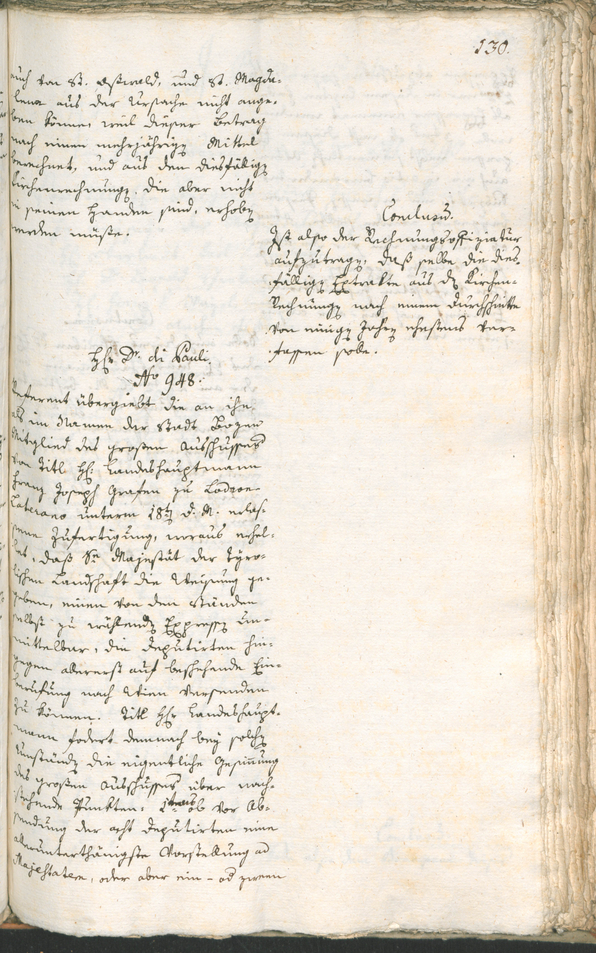 130.
auch von St. Oßwald, und St. Magda-
lena aus der Ursache nicht ange-
ben könne, weil dieser Betrag
nach einen mehrjährigen Mittel
berechnet, und aus den diesfälligen
Kirchenrechnungen, die aber nicht
in seinen Handen sind, erhoben
werden müßte.
Conclusum.
Ist also der Rechnungsoffiziatur
aufzutragen, daß selbe die dies-
fälligen Extrakte aus den Kirchen-
Rechnungen nach einem Durchschnitte
von einigen Jahren ehestens ver-
fassen solle.
Hr Dr. di Pauli.
No 948.
Referent übergiebt die an ihn
als im Namen der Stadt Bozen
Mitglied des großen Ausschusses
von Titl Hr Landeshauptmann
Franz Joseph Grafen zu Lodron-
Laterano unterm 18ten d. M. erlas-
sene Zufertigung, woraus erhel-
let, daß Se Majestät der Tyro-
lischen Landschaft die Weisung ge-
geben, einen von den Ständen
selbst zu wählenden Expressen un-
mittelbar, die Deputirten hin-
gegen allererst auf beschehende Ein-
berufung nach Wien versenden
zu können. Titl Hr Landeshaupt-
mann fodert demnach bey solchen
Umständen die eigentliche Gesinnung
des großen Ausschusses über nach-
stehende Punkten: 1tens ob vor Ab-
sendung der acht Deputirten eine
allerunterthänigste Vorstellung ad
Majestatem, oder aber ein- ad zween